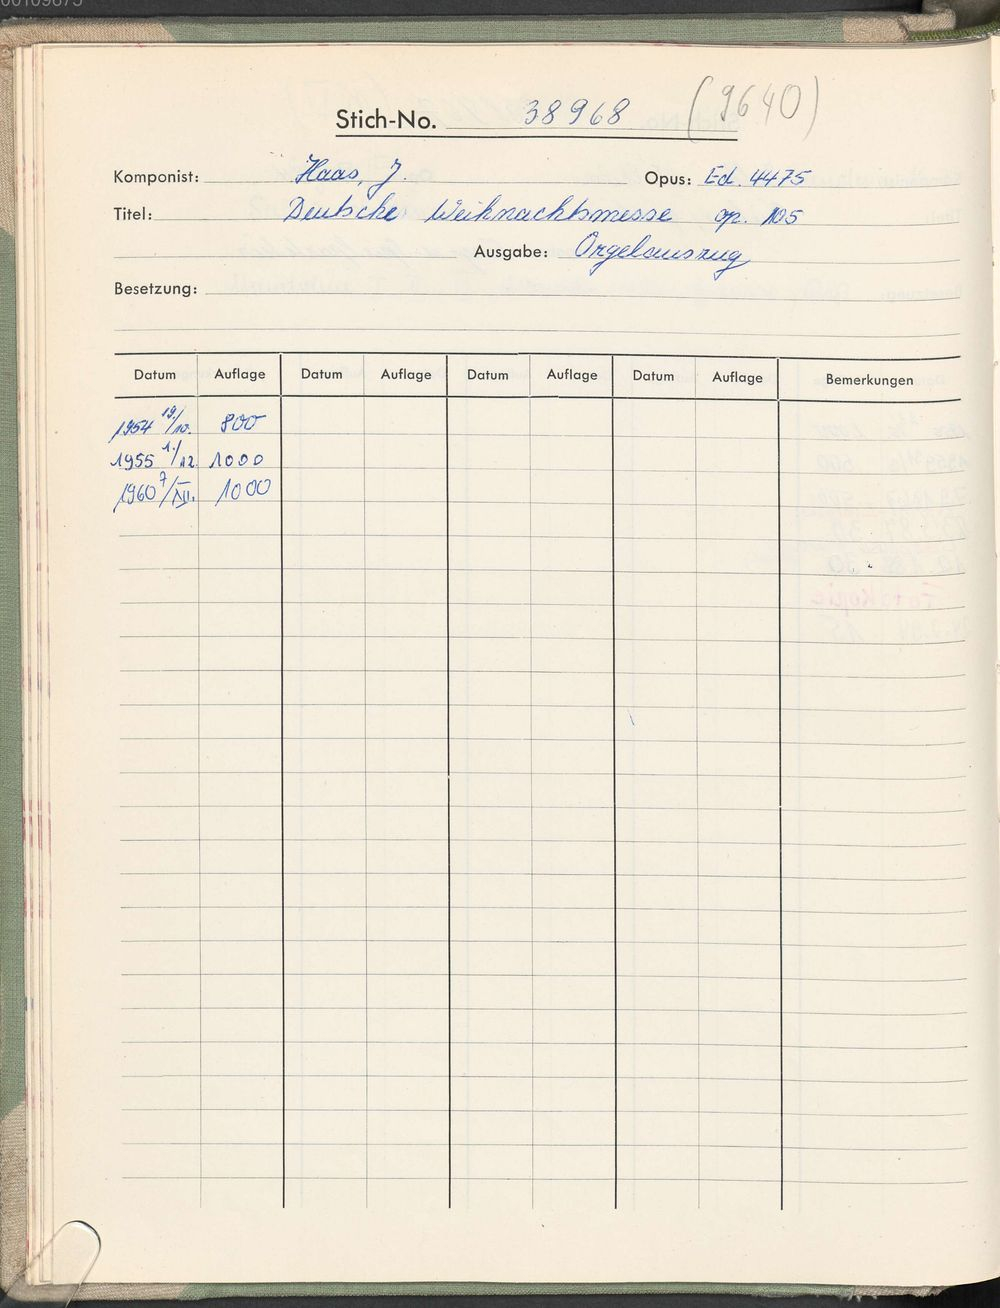 00109875
Stich-No. 38968 (9640)
Komponist: Haas, J. Opus: Ed. 4475
Titel: Deutsche Weihnachtsmesse op. 105
Ausgabe: Orgelauszug
Besetzung:
Datum Auflage Datum Auflage Datum Auflage Datum Auflage Bemerkungen
1954 19/10. 800
1955 1./12. 1000
1960 7/XII. 1000